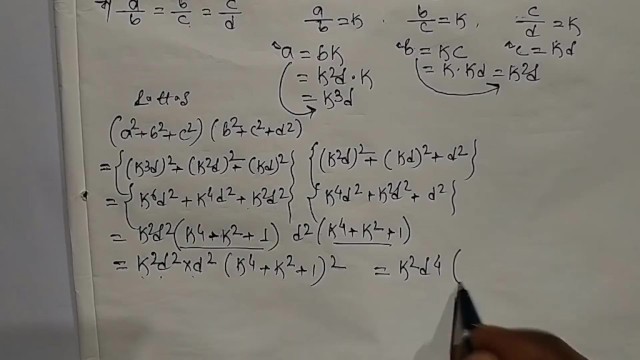 a/b = b/c = c/d    a/b = K .    b/c = K ,    c/d = K
a = bK    b = KC    c = Kd
= K²d·K    = K·Kd = K²d
= K³d
(a²+b²+c²) (b²+c²+d²)
= {(K³d)²+(K²d)²+(Kd)²} {(K²d)²+(Kd)²+d²}
= {K⁶d²+K⁴d²+K²d²} {K⁴d²+K²d²+d²}
= K²d²(K⁴+K²+1) d²(K⁴+K²+1)
= K²d²×d²(K⁴+K²+1)²    = K²d⁴(